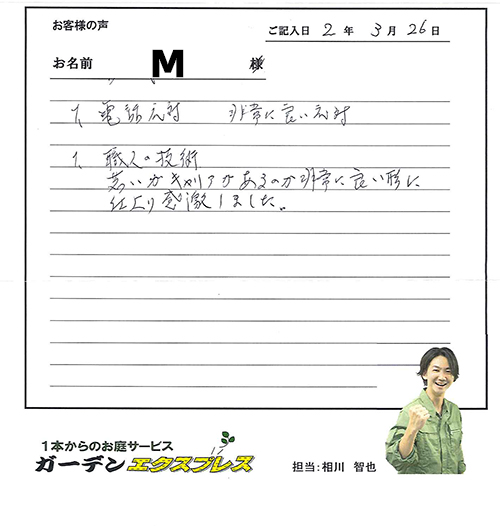 お客様の声
ご記入日 2 年 3 月 26 日
お名前 M 様
1、電話応対 非常に良い応対
1、職人の技術
若いがキャリアがあるのか非常に良い形に
仕上り感激しました。
1本からのお庭サービス
ガーデンエクスプレス
担当:相川 智也